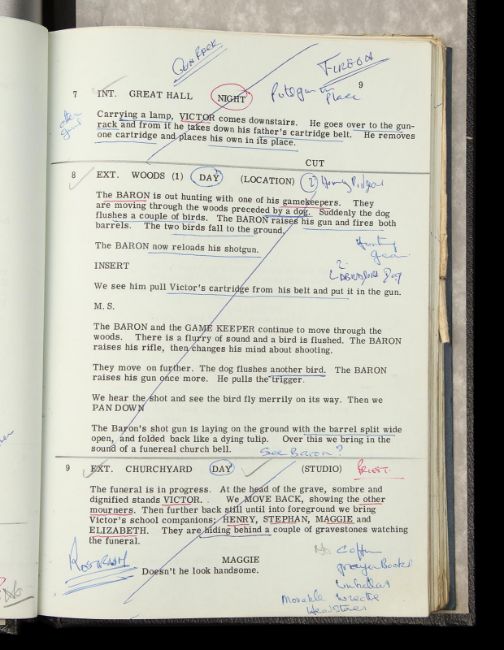 GUN RACK
9
7 INT. GREAT HALL NIGHT
Put gun in
Place
other
gun
Carrying a lamp, VICTOR comes downstairs. He goes over to the gun-
rack and from it he takes down his father's cartridge belt. He removes
one cartridge and places his own in its place.
CUT
8 EXT. WOODS (1) DAY (LOCATION)
The BARON is out hunting with one of his gamekeepers. They
are moving through the woods preceded by a dog. Suddenly the dog
flushes a couple of birds. The BARON raises his gun and fires both
barrels. The two birds fall to the ground.
The BARON now reloads his shotgun.
Hunting
gear
INSERT
2
Labrador Dog
We see him pull Victor's cartridge from his belt and put it in the gun.
M.S.
The BARON and the GAME KEEPER continue to move through the
woods. There is a flurry of sound and a bird is flushed. The BARON
raises his rifle, then changes his mind about shooting.
They move on further. The dog flushes another bird. The BARON
raises his gun once more. He pulls the trigger.
We hear the shot and see the bird fly merrily on its way. Then we
PAN DOWN
The Baron's shot gun is laying on the ground with the barrel split wide
open, and folded back like a dying tulip. Over this we bring in the
sound of a funereal church bell.
See Baron?
9 EXT. CHURCHYARD DAY (STUDIO) PRIEST
The funeral is in progress. At the head of the grave, sombre and
dignified stands VICTOR. We MOVE BACK, showing the other
mourners. Then further back still until into foreground we bring
Victor's school companions; HENRY, STEPHAN, MAGGIE and
ELIZABETH. They are hiding behind a couple of gravestones watching
the funeral.
No Coffin
MAGGIE
Doesn't he look handsome.
prayer Books
umbrellas
Movable
Headstones